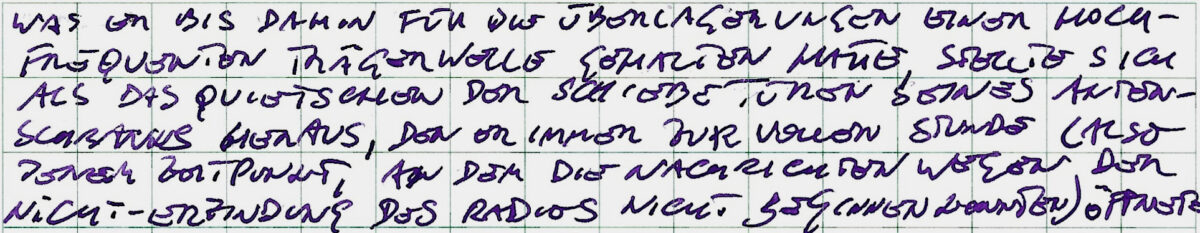 WAS ER BIS DAHIN FÜR DIE ÜBERLAGERUNGEN EINER HOCH-
FREQUENTEN TRÄGERWELLE GEHALTEN HATTE, STELLTE SICH
ALS DAS QUIETSCHEN DER SCHIEBETÜREN SEINES AKTEN-
SCHRANKS HERAUS, DEN ER IMMER ZUR VOLLEN STUNDE (ALSO
JENEM ZEITPUNKT, AN DEM DIE NACHRICHTEN WEGEN DER
NICHT-ERFINDUNG DES RADIOS NICHT BEGINNEN KONNTEN) ÖFFNETE